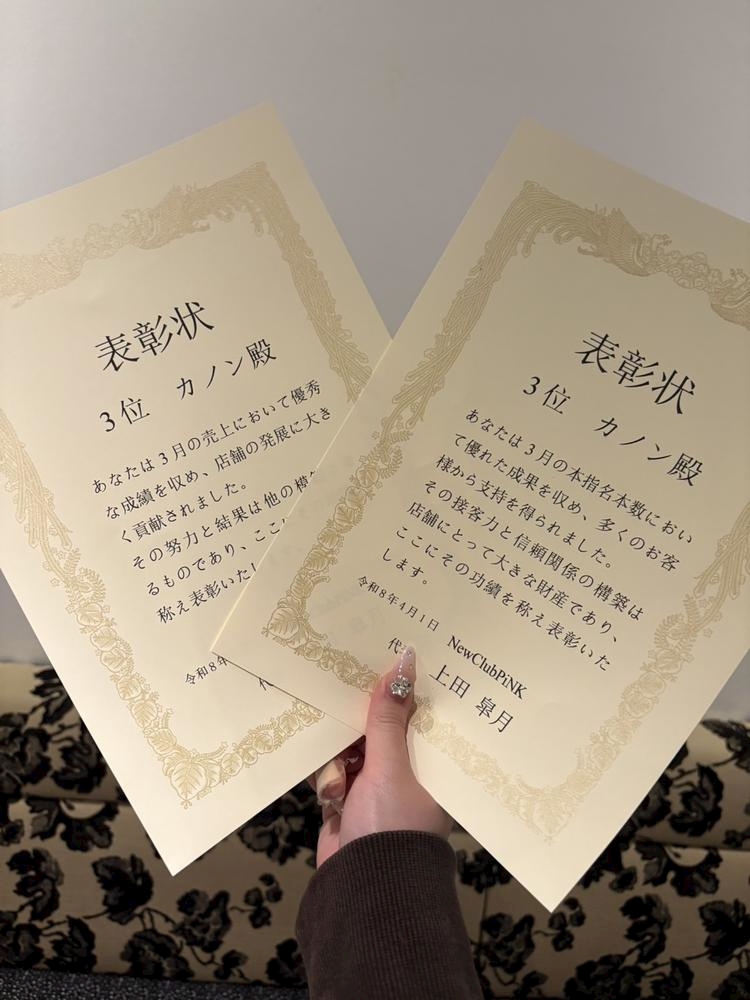 表彰状
3位 カノン殿
あなたは3月の売上において優秀
な成績を収め、店舗の発展に大き
く貢献されました。
その努力と結果は他の模
るものであり、ここ
称え表彰いたし
令和8年
表彰状
3位 カノン殿
あなたは3月の本指名本数におい
て優れた成果を収め、多くのお客
様から支持を得られました。
その接客力と信頼関係の構築は
店舗にとって大きな財産であり、
ここにその功績を称え表彰いた
します。
令和8年4月1日 NewClubPiNK
代 上田 皐月